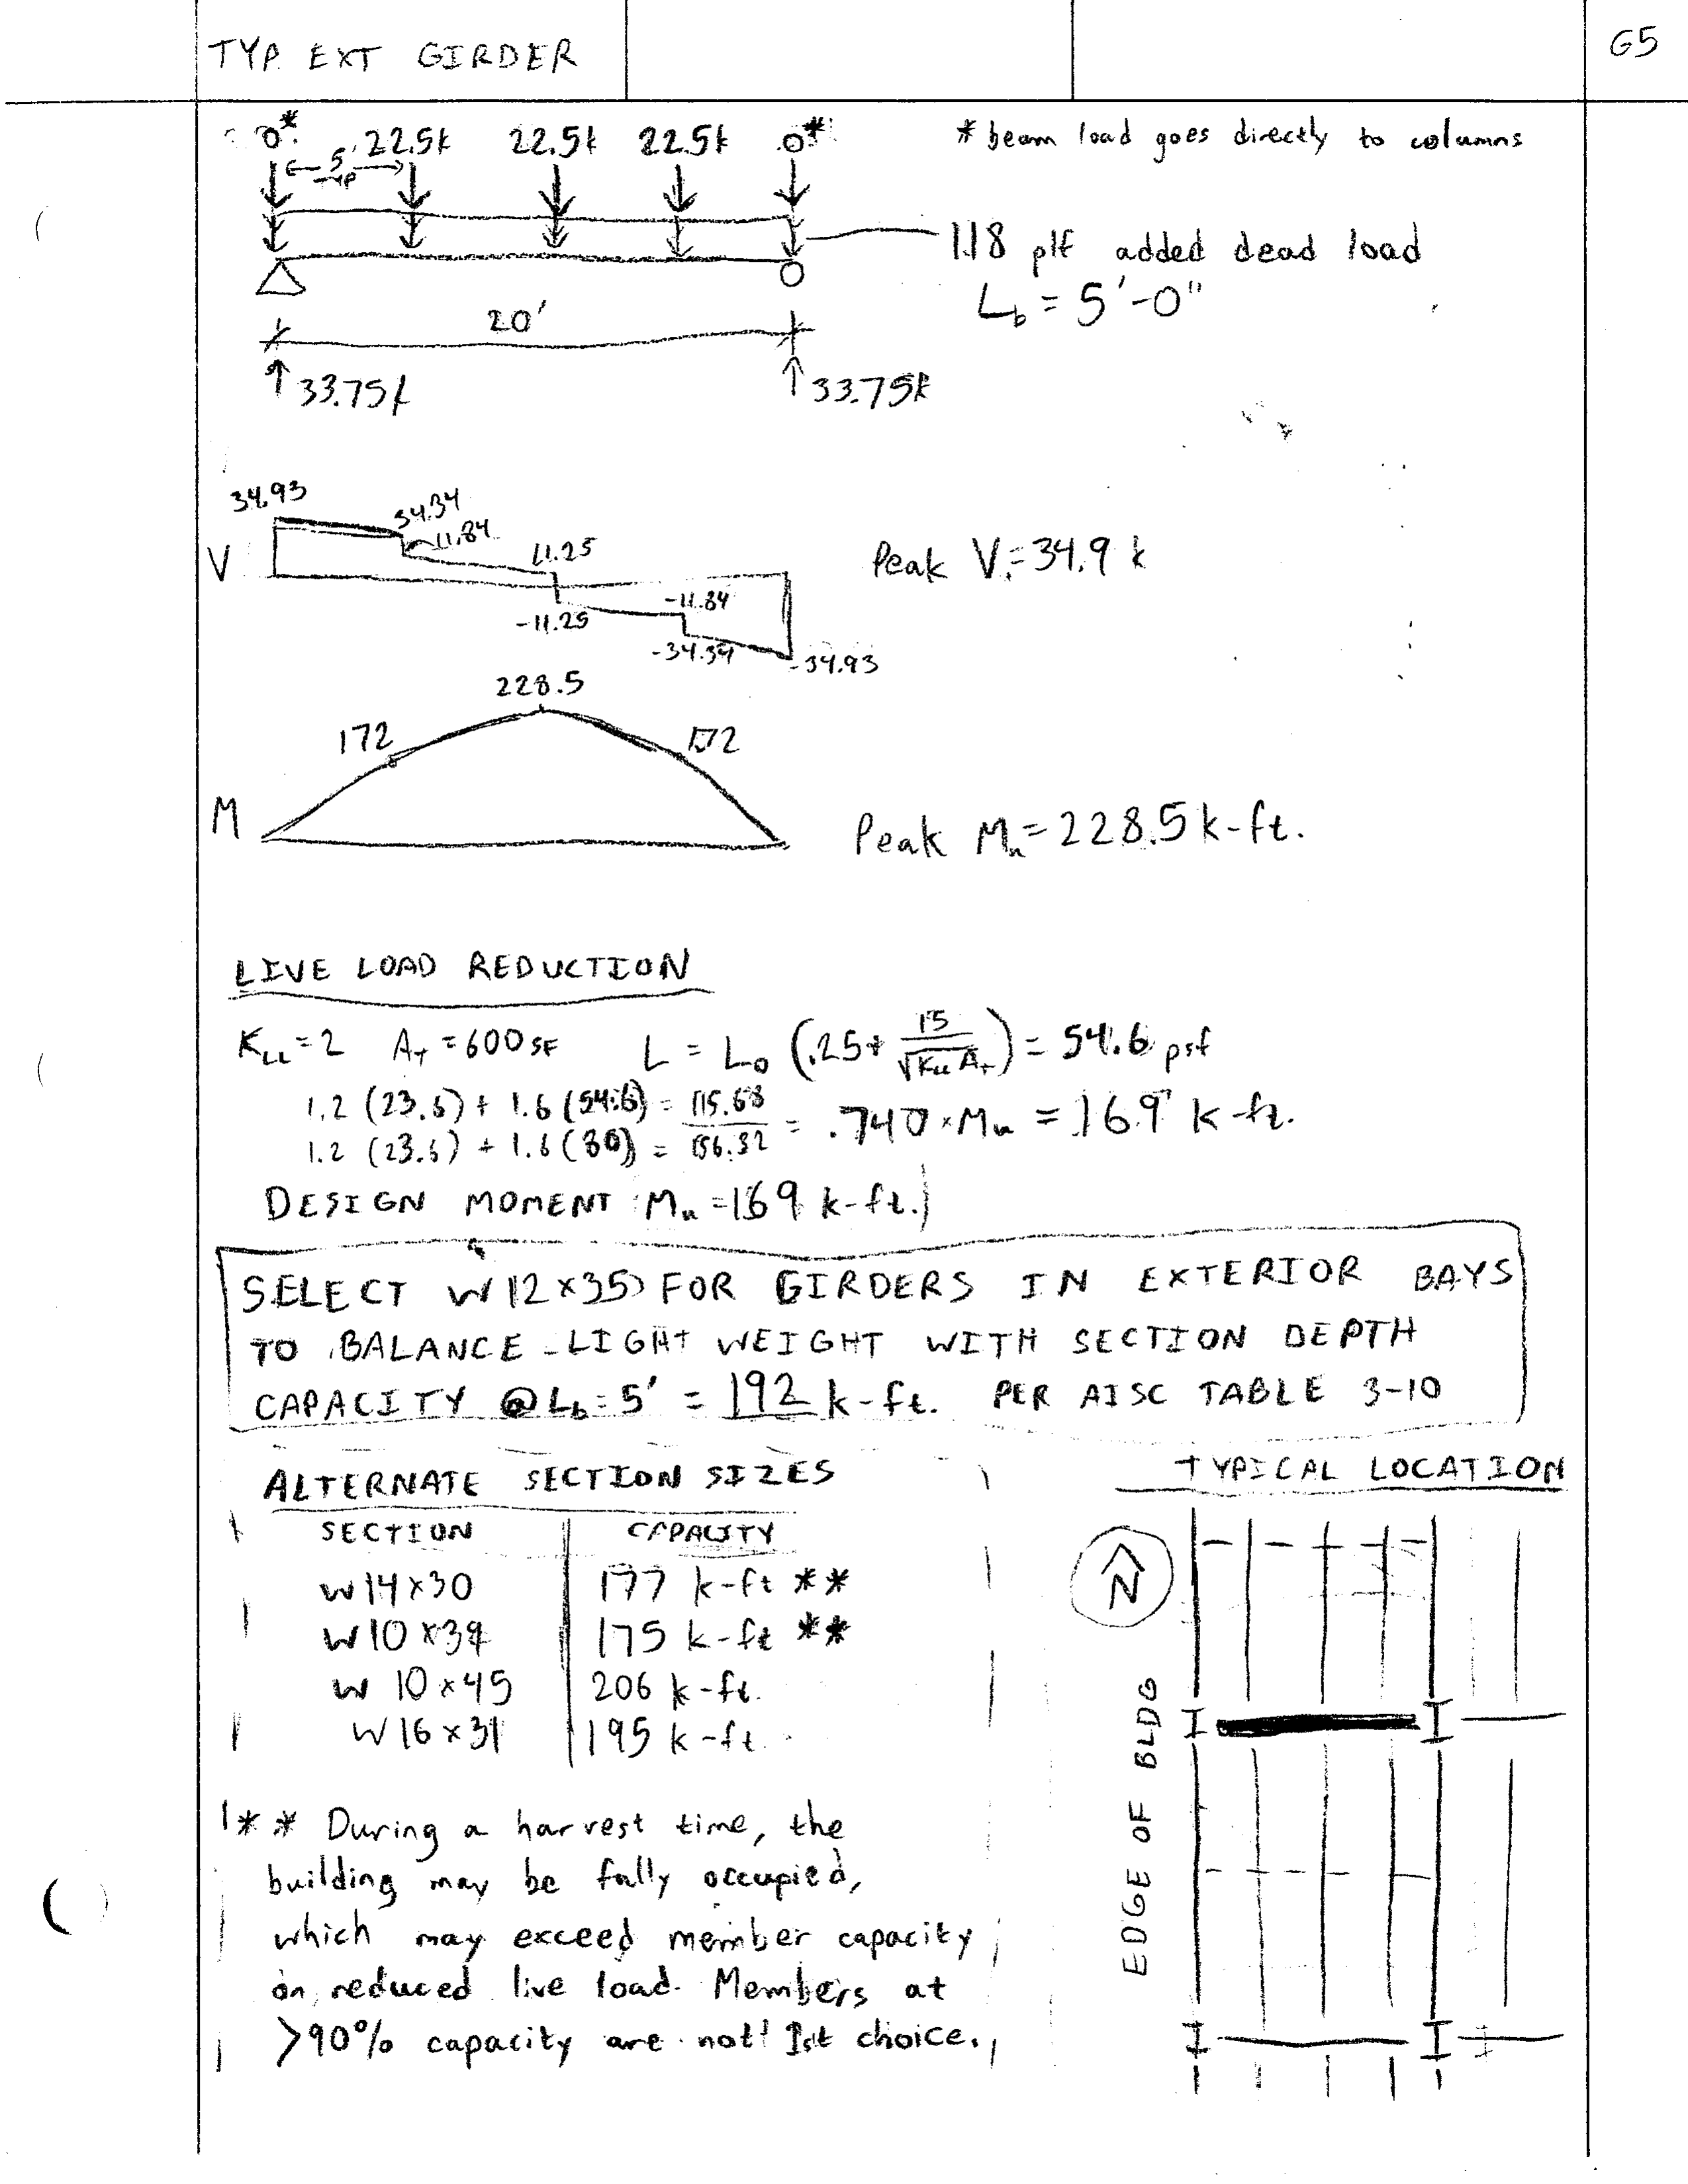 TYP. EXT GIRDER
G5
0* 22.5k 22.5k 22.5k 0*
5' TYP
* beam load goes directly to columns
118 plf added dead load
Lb = 5'-0"
20'
33.75k 33.75k
34.93
34.34
11.84
11.25
V
-11.25
-11.84
-34.34
-34.93
Peak V = 34.9 k
228.5
172 172
M
Peak Mu = 228.5 k-ft.
LIVE LOAD REDUCTION
KLL = 2 AT = 600 SF L = Lo (.25 + 15 / √KLL AT) = 54.6 psf
1.2 (23.6) + 1.6 (54.6) = 115.68
1.2 (23.6) + 1.6 (80) = 156.32
= .740 × Mu = 169 k-ft.
DESIGN MOMENT Mu = 169 k-ft.
SELECT W12×35 FOR GIRDERS IN EXTERIOR BAYS
TO BALANCE LIGHT WEIGHT WITH SECTION DEPTH
CAPACITY @ Lb = 5' = 192 k-ft. PER AISC TABLE 3-10
ALTERNATE SECTION SIZES
SECTION CAPACITY
W14×30 177 k-ft **
W10×39 175 k-ft **
W 10×45 206 k-ft.
W16×31 195 k-ft.
** During a harvest time, the
building may be fully occupied,
which may exceed member capacity
on reduced live load. Members at
>90% capacity are not 1st choice.
TYPICAL LOCATION
N
EDGE OF BLDG